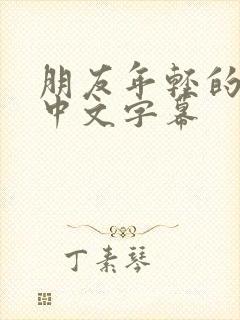 朋友年轻的
中文字幕
丁素琴